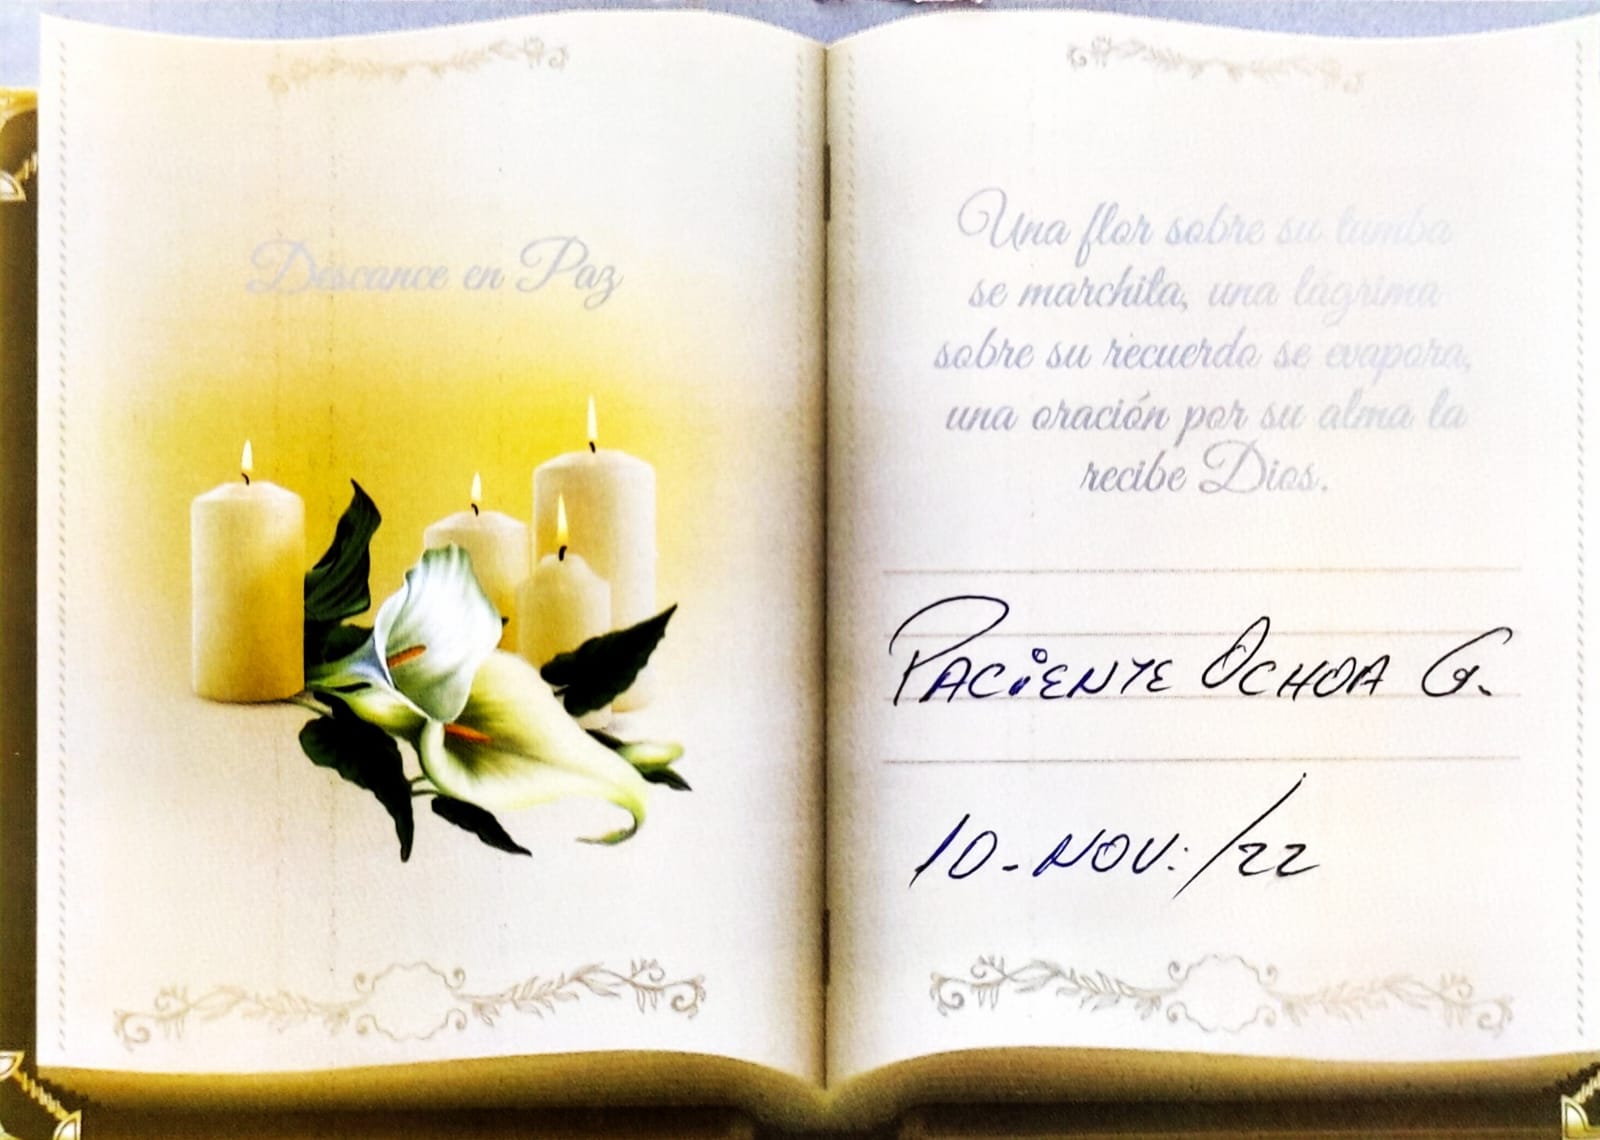 Descance en Paz
Una flor sobre su tumba
se marchita, una lágrima
sobre su recuerdo se evapora,
una oración por su alma la
recibe Dios.
PACIENTE OCHOA G.
10-NOV:/22